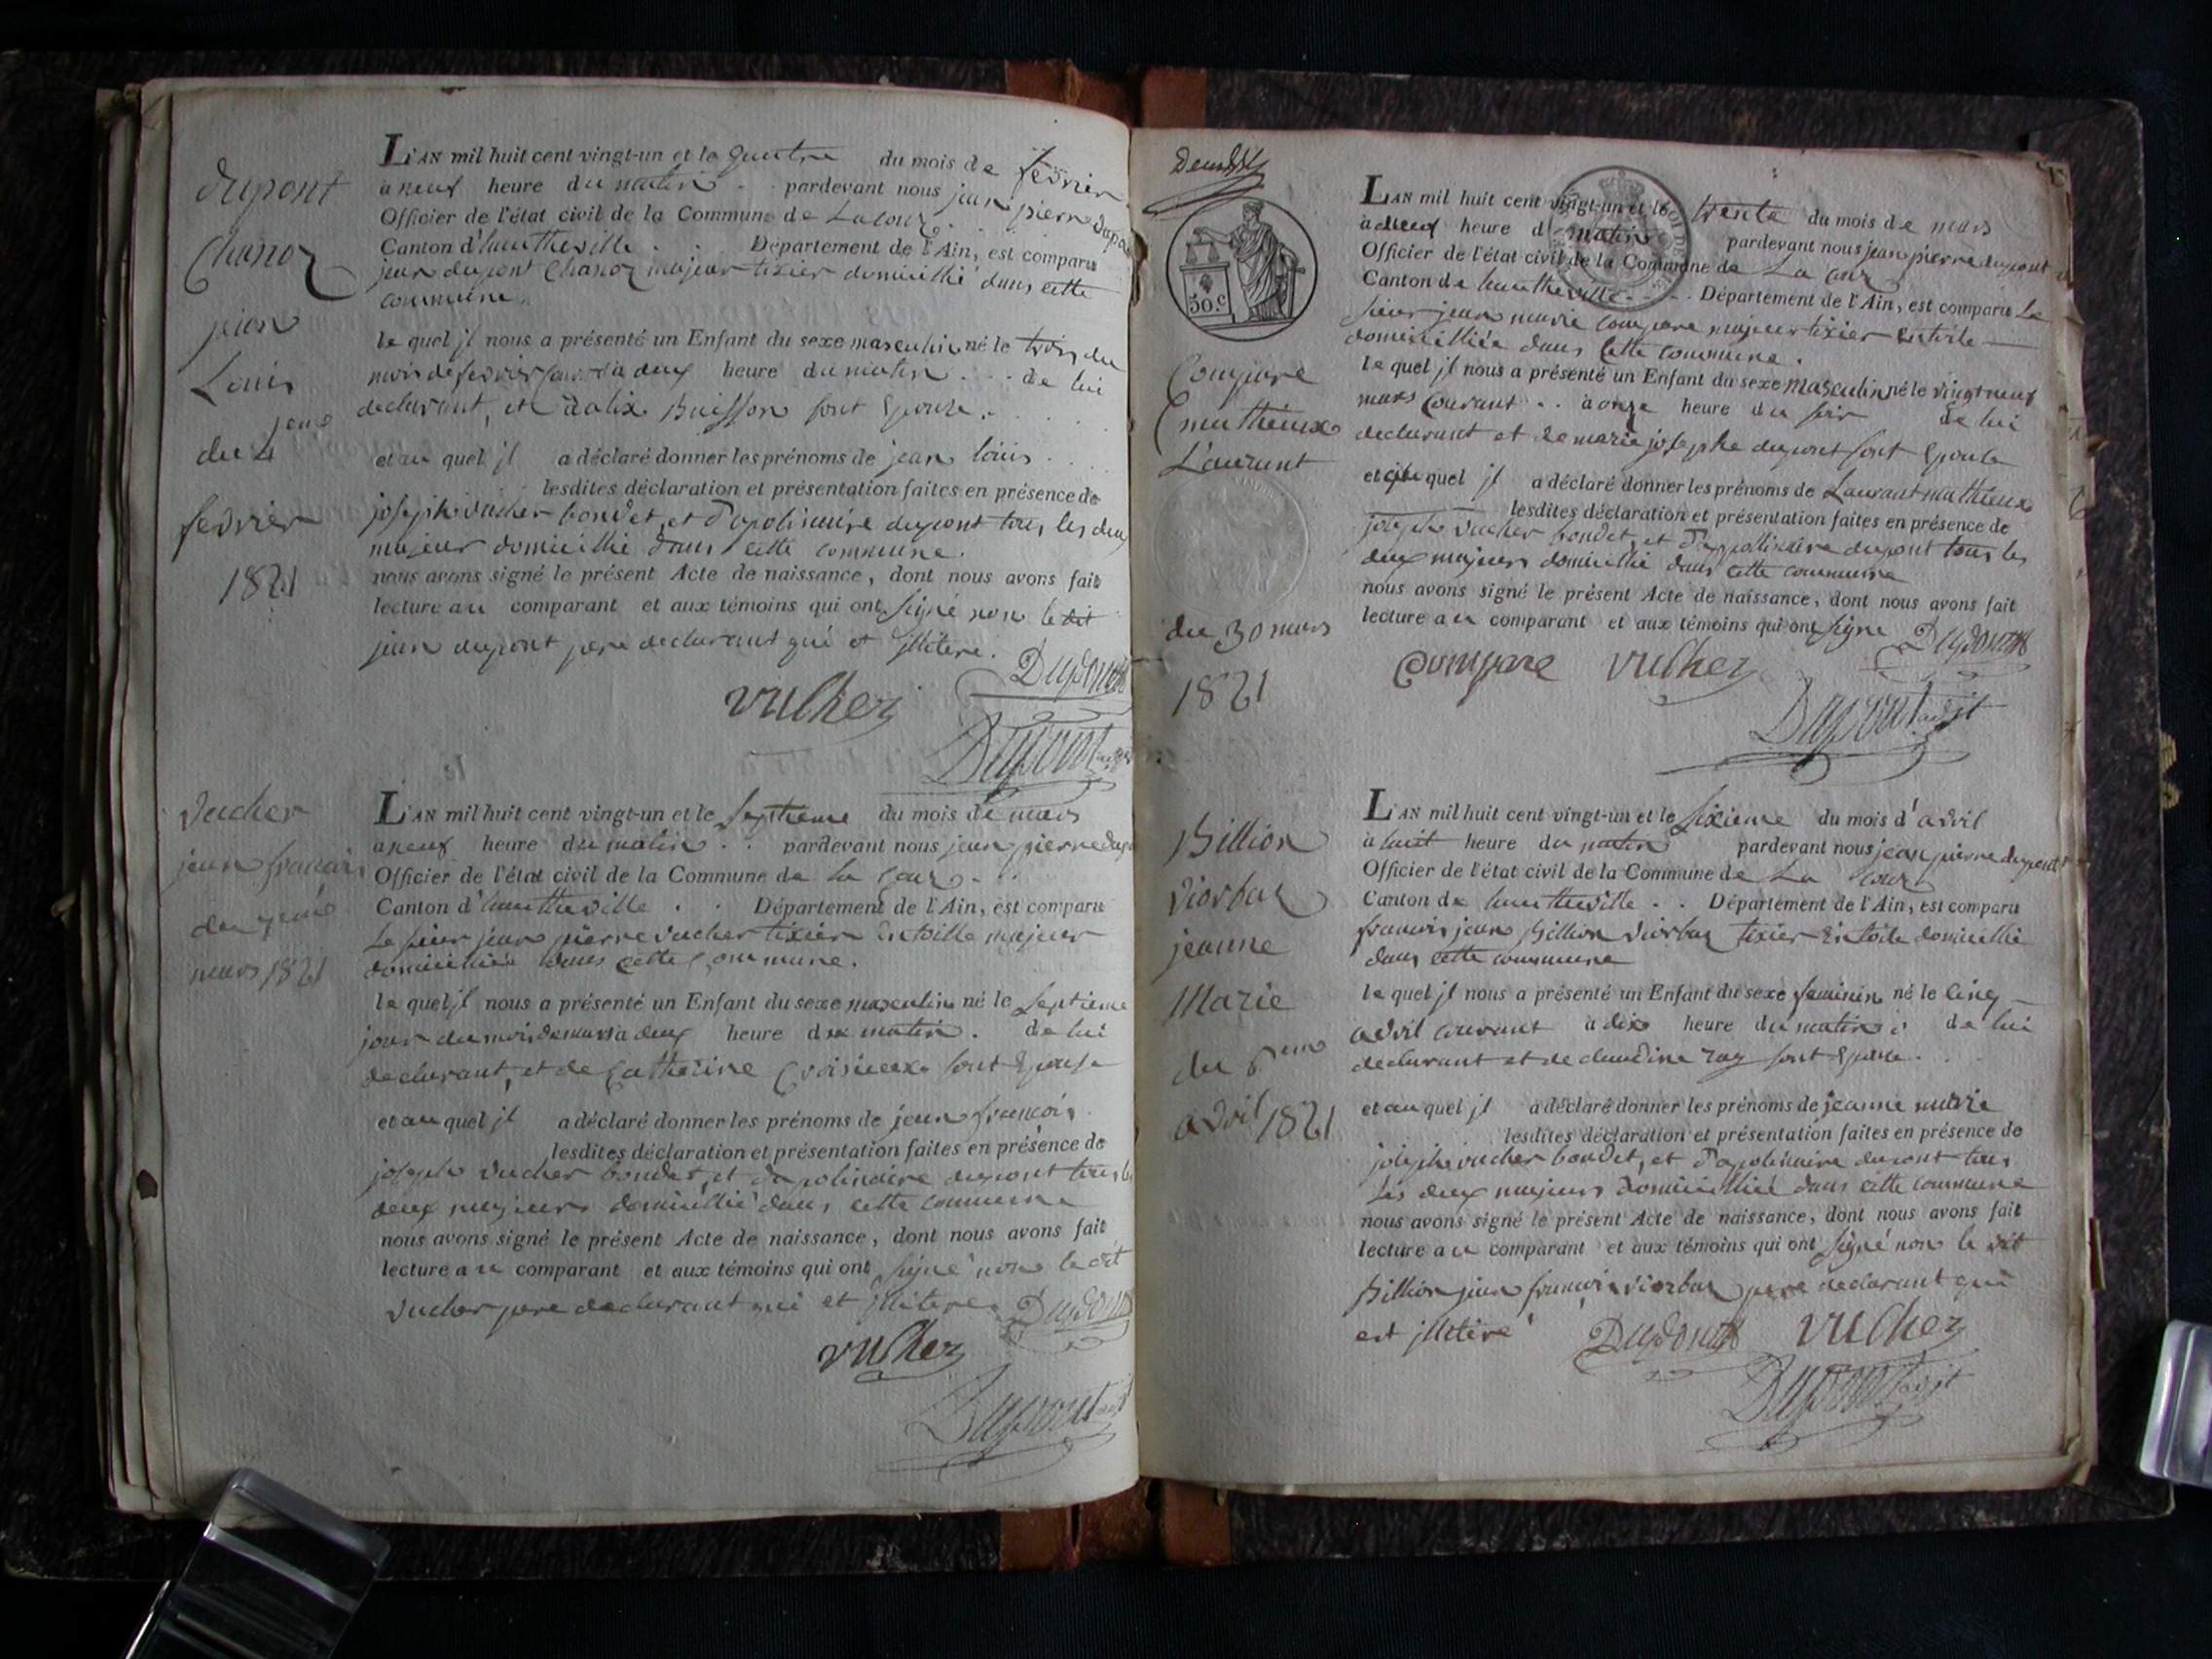 dupont
Chanoz
jean
Louis
du 4 eme
fevrier
1821
L'AN mil huit cent vingt-un et le quatre du mois de fevrier
a neuf heure du matin . . pardevant nous jean pierre dupont
Officier de l'état civil de la Commune de Lacoux . .
Canton d'hautheville . . Département de l'Ain, est comparu
jean dupont Chanoz majeur tixier domicillié dans cette
commune.
le quel jl nous a présenté un Enfant du sexe masculin né le trois du
mois de fevrier a deux heure du matin . . . de lui
declarant, et d'alix Buisson sont Epouse .
et au quel jl a déclaré donner les prénoms de jean louis . . .
lesdites déclaration et présentation faites en présence de
joseph vucher bondet, et d'apolinaire dupont tous les deux
majeur domicillié dans cette commune.
nous avons signé le présent Acte de naissance, dont nous avons fait
lecture au comparant et aux témoins qui ont signé non le dit
jean dupont pere declarant qui et jllitere.
Dupont
vucher
Dupont
Vucher
jean francois
du 7 eme
mars 1821
L'AN mil huit cent vingt-un et le septieme du mois de mars
a neuf heure du matin . . pardevant nous jean pierre
Officier de l'état civil de la Commune de la Coux . .
Canton d'hautheville . . Département de l'Ain, est comparu
Le sieur jean pierre vucher tixier en toille majeur
domicillié dans cette Commune.
le quel jl nous a présenté un Enfant du sexe masculin né le septieme
jour du mois de mars a deux heure du matin . de lui
declarant, et de Catherine Croisieux sont Epouse
et au quel jl a déclaré donner les prénoms de jean francois .
lesdites déclaration et présentation faites en présence de
joseph vucher bondet, et d'apolinaire dupont tous les
deux majeurs domicillié dans cette commune
nous avons signé le présent Acte de naissance, dont nous avons fait
lecture au comparant et aux témoins qui ont signé non le dit
Vucher pere declarant qui et jllitere
Dupont
vucher
Dupont
50 c.
Compare
mathieux
Laurant
du 30 mars
1821
L'AN mil huit cent vingt-un et le trente du mois de mars
a neuf heure d matin pardevant nous jean pierre dupont
Officier de l'état civil de la Commune de La Coux
Canton de hautheville . . . Département de l'Ain, est comparu Le
sieur jean marie compare majeur tixier en toile
domicilliée dans Cette commune.
le quel jl nous a présenté un Enfant du sexe masculin né le vingt neuf
mars Courant . . a onze heure du soir de lui
declarant et de marie josephe dupont sont Epouse
et au quel jl a déclaré donner les prénoms de Laurant mathieux
lesdites déclaration et présentation faites en présence de
joseph vucher bondet, et d'appollinaire dupont tous les
deux majeurs domicillié dans cette commune
nous avons signé le présent Acte de naissance, dont nous avons fait
lecture au comparant et aux témoins qui ont signe Dupont
Compare vucher
Dupont adjt
Billion
Viorbaz
jeanne
Marie
du 6 eme
avril 1821
L'AN mil huit cent vingt-un et le sixieme du mois d'avril
a huit heure du matin pardevant nous jean pierre dupont
Officier de l'état civil de la Commune de La Coux
Canton de hautheville . . Département de l'Ain, est comparu
francois jean Billion Viorbaz tixier en toile domicillié
dans cette commune
le quel jl nous a présenté un Enfant du sexe feminin né le cinq
avril courant a dix heure du matin . de lui
declarant et de claudine ray sont Epouse .
et au quel jl a déclaré donner les prénoms de jeanne marie
lesdites déclaration et présentation faites en présence de
joseph vucher bondet, et d'apolinaire dupont tous
les deux majeurs domicillié dans cette commune
nous avons signé le présent Acte de naissance, dont nous avons fait
lecture au comparant et aux témoins qui ont signé non le dit
Billion jean francois viorbaz pere declarant qui
est jlliteré Dupont vucher
Dupont adjt